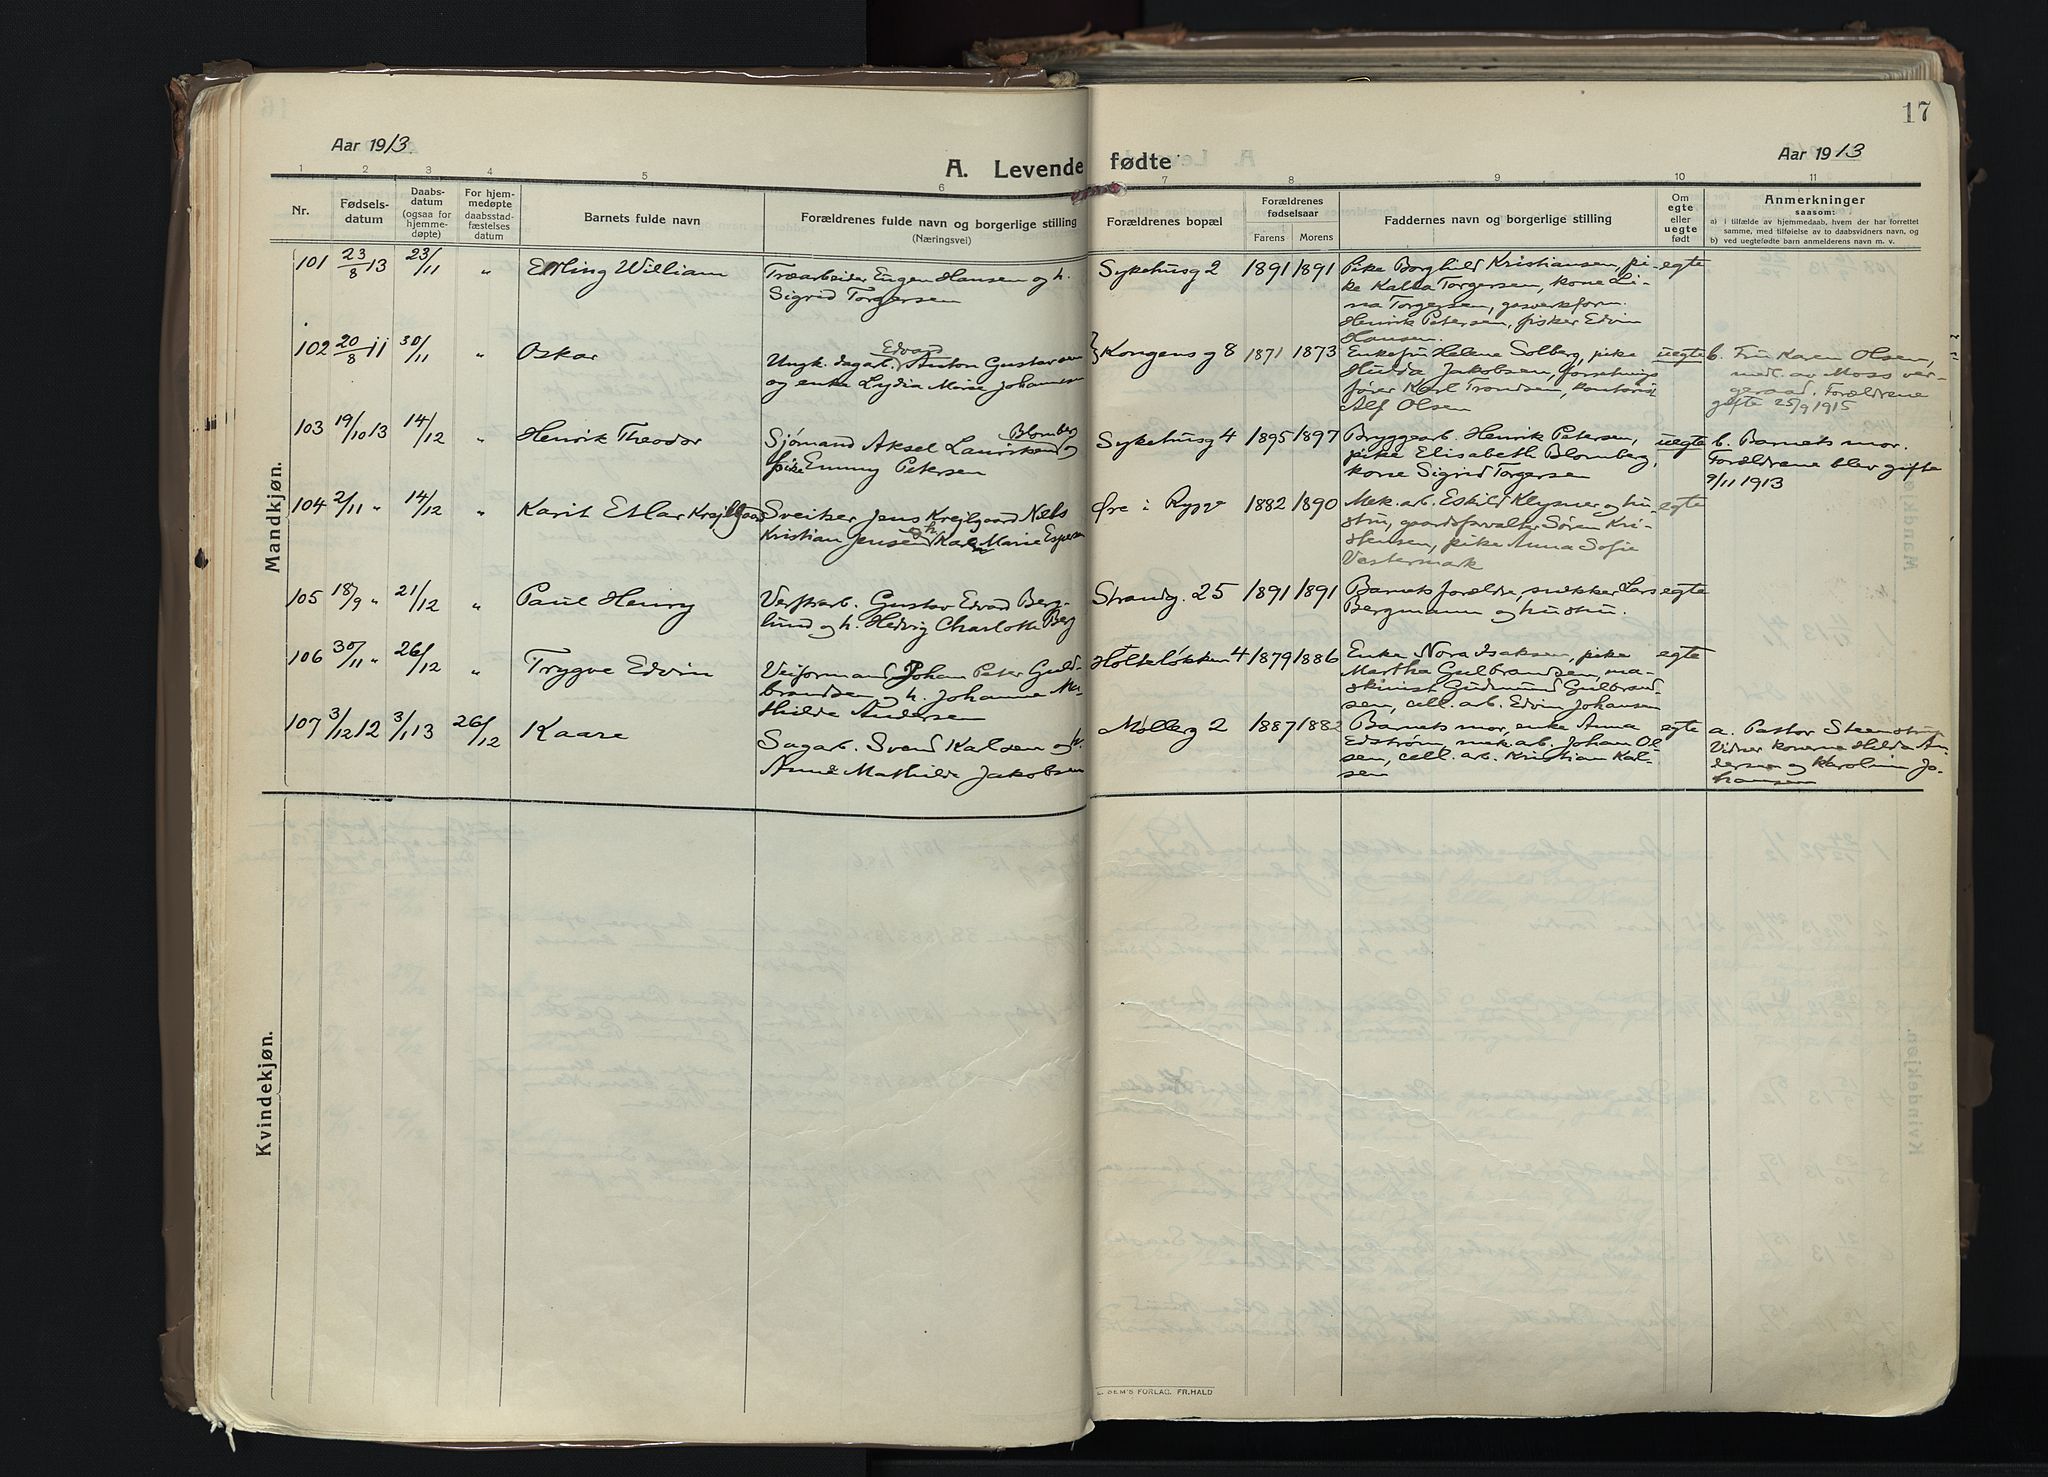 17
Aar 1913.
A. Levende fødte
Aar 1913
1 2 3 4 5 6 7 8 9 10 11
Nr.
Fødsels-
datum
Daabs-
datum
(ogsaa for
hjemme-
døpte)
For hjem-
medøpte
daabsstad-
fæstelses
datum
Barnets fulde navn
Forældrenes fulde navn og borgerlige stilling
(Næringsvei)
Forældrenes bopæl
Forældrenes
fødselsaar
Farens Morens
Faddernes navn og borgerlige stilling
Om
egte
eller
uegte
født
Anmerkninger
saasom:
a) i tilfælde av hjemmedaab, hvem der har forrettet
samme, med tilføielse av to daabsvidners navn, og
b) ved uegtefødte barn anmelderens navn m. v.
Mandkjøn.
101 23/8 13 23/11 " Erling William
Træarbeider Eugen Hansen og h.
Sigrid Torgersen
Sykehusg 2 1891 1891
Pike Borghild Kristiansen, pi-
ke Kalla Torgersen, kone Li-
na Torgersen, gasverksform.
Henrik Petersen, fisker Edvin
Hansen.
egte
102 20/8 11 30/11 " Oskar
Edvard
Ungk. dagarb. Anton Gustavsen
og enke Lydia Marie Johannesen
Kongensg 8 1871 1873
Enkefru Helene Solberg, pike
Hulda Jakobsen, forretnings
fører Karl Trondsen, kontorist
Alf Olsen
uegte
b. Fru Karen Olsen,
medl. av Moss ver-
geraad. Forældrene
gifte 25/9 1915
103 19/10 13 14/12 " Henrik Theodor
Blomberg
Sjømand Aksel Lauritsen og
pike Emmy Petersen
Sykehusg 4 1895 1897
Bryggearb. Henrik Petersen,
pike Elisabeth Blomberg,
kone Sigrid Torgersen
uegte
b. Barnets mor.
Forældrene blev gifte
9/11 1913
104 2/11 " 14/12 " Karit Etlar Krejlgaard
Sveitser Jens Krejlgaard Niels
Kristian Jensen og h. Karen Marie Espersen
Øre i Rygge 1882 1890
Mek. arb. Eskild Klysner og hu-
stru, gaardsforvalter Søren Kri-
stensen, pike Anna Sofie
Vestermark
egte
105 18/9 " 21/12 " Paul Henry
Verftsarb. Gustav Edvard Berg-
lund og h. Hedvig Charlotte Berg
Strandg. 25 1891 1891
Barnets forældre, snekker Lars
Bergmann og hustru.
egte
106 30/11 " 26/12 " Trygve Edvin
Veiformand Johan Peter Guld-
brandsen og h. Johanne Ma-
thilde Andersen
Holteløkken 4 1879 1886
Enke Nora Isaksen, pike
Martha Gulbrandsen, ma-
skinist Gudmund Gulbrand-
sen, cell. arb. Edvin Johansen
egte
107 3/12 12 3/1 13 26/12 Kaare
Sagarb. Svend Karlsen og h.
Anna Mathilde Jakobsen
Møllerg 2 1887 1882
Barnets mor, enke Anna
Edstrøm, mek. arb. Johan Ol-
sen, cell. arb. Kristian Karl-
sen
egte
a. Pastor Steenstrup
Vidner konerne Hilda An-
dersen og Karoline Jo-
hansen
Kvindekjøn.
SEM'S FORLAG. FR.HALD